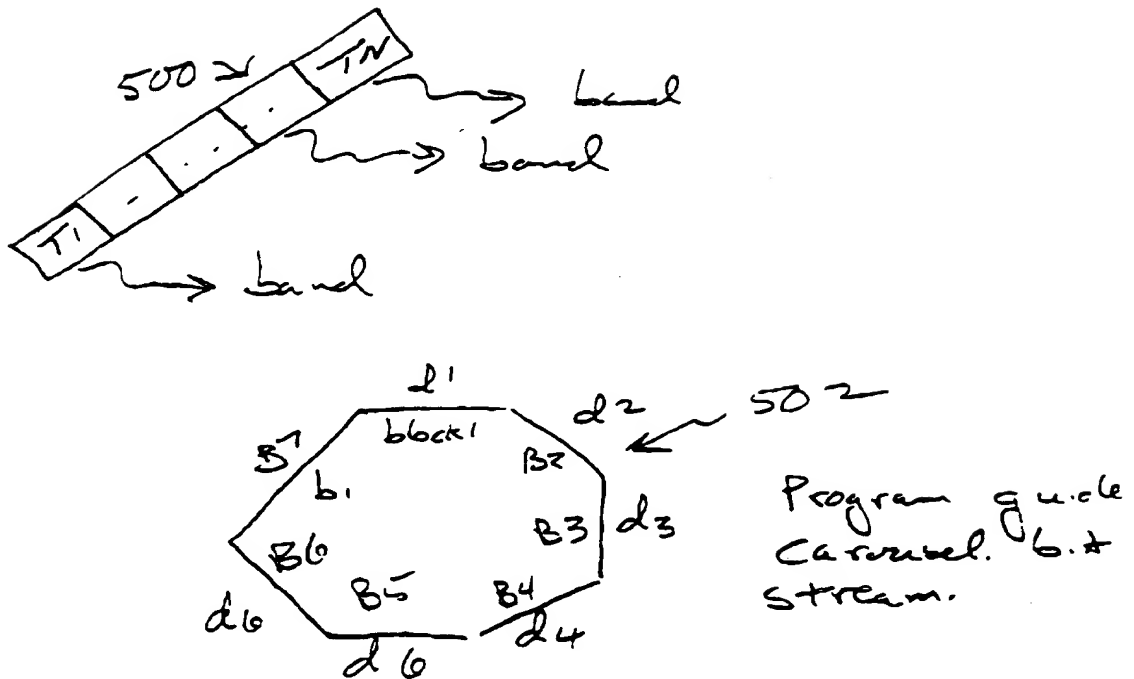 500
TN
T1
band
band
band
d1
block1
d2
502
B7
b1
B2
B3
d3
B6
B5
B4
d4
d6
d6
Program guide
Carousel. bit
stream.